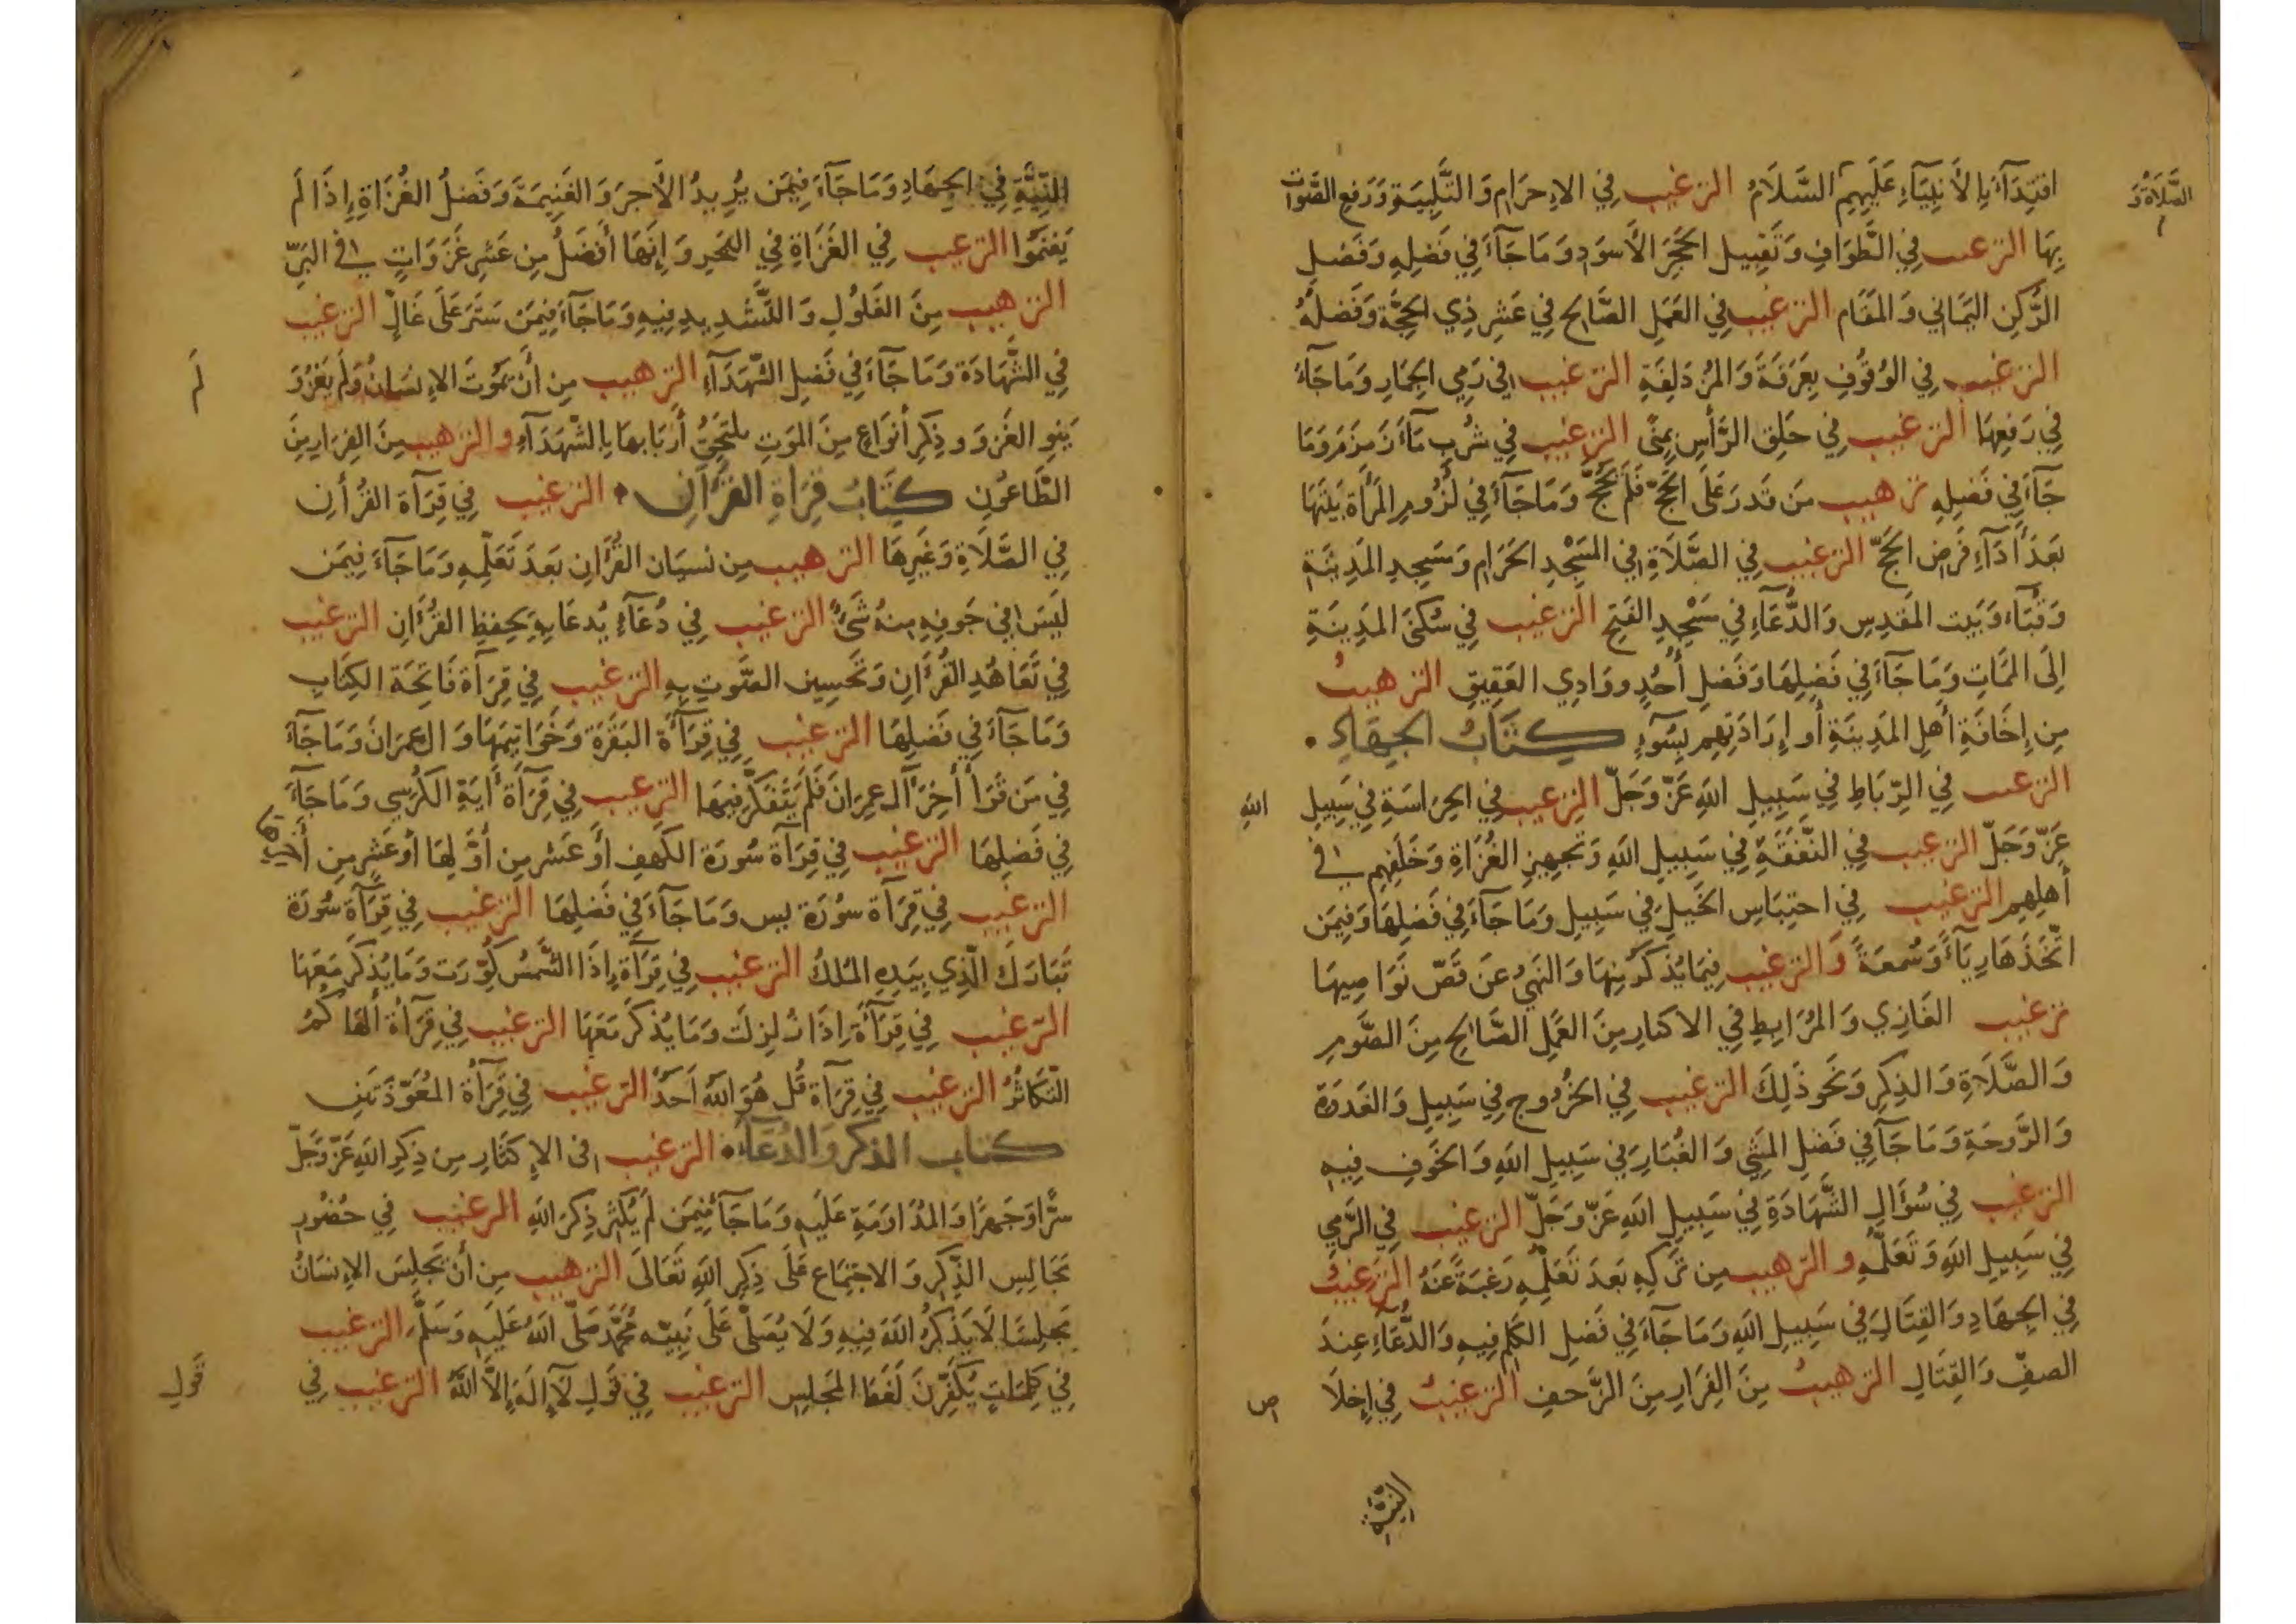 اقتِدَآءً بِالأَنبِيَآءِ عَلَيهِمِ السَّلَامُ الترغيب فِي الإِحرَامِ وَالتَّلبِيَةِ وَرَفعِ الصَّوتِ
الصَّلاَة وَ
بِهَا الترغيب فِي الطَّوَافِ وَتَقبِيلِ الحَجَرِ الأَسوَدِ وَمَا جَآءَ فِي فَضلِهِ وَفَضلِ
الرُّكنِ اليَمَانِي وَالمَقَامِ الترغيب فِي العَمَلِ الصَّالِحِ فِي عَشرِ ذِي الحِجَّةِ وَفَضلُهُ
الترغيب فِي الوُقُوفِ بِعَرَفَةَ وَالمُزدَلِفَةِ الترغيب فِي رَميِ الجِمَارِ وَمَا جَآءَ
فِي رَفعِهَا الترغيب فِي حَلقِ الرَّأسِ بِمِنًى الترغيب فِي شُربِ مَآءِ زَمزَمَ وَمَا
جَآءَ فِي فَضلِهِ ترهيب مَن قَدَرَ عَلَى الحَجِّ فَلَم يَحُجَّ وَمَا جَآءَ فِي لُزُومِ المَرأَةِ بَيتَهَا
بَعدَ أَدَآءِ فَرضِ الحَجِّ الترغيب فِي الصَّلَاةِ فِي المَسجِدِ الحَرَامِ وَمَسجِدِ المَدِينَةِ
وَقُبَآء وَبَيتِ المَقدِسِ وَالدُّعَآءِ فِي مَسجِدِ الفَتحِ الترغيب فِي سُكنَى المَدِينَةِ
إِلَى المَمَاتِ وَمَا جَآءَ فِي فَضلِهَا وَفَضلِ أُحُدٍ وَوَادِي العَقِيقِ الترهيبُ
مِن إِخَافَةِ أَهلِ المَدِينَةِ أَو إِرَادَتِهِم بِسُوٓءٍ كِتَابُ الجِهَادِ •
الترغيب فِي الرِّبَاطِ فِي سَبِيلِ اللهِ عَزَّ وَجَلَّ الترغيب فِي الحِرَاسَةِ فِي سَبِيلِ
اللهِ
عَزَّ وَجَلَّ الترغيب فِي النَّفَقَةِ فِي سَبِيلِ اللهِ وَتَجهِيزِ الغُزَاةِ وَخَلَفِهِم فِي
أَهلِهِم الترغيب فِي احتِبَاسِ الخَيلِ فِي سَبِيلِ وَمَا جَآءَ فِي فَضلِهَا وَفِيمَن
اتَّخَذَهَا رِيَآءً وَسُمعَةً وَالترغيب فِيمَا يُذكَرُ مِنهَا وَالنَهيُ عَن قَصِّ نَوَاصِيهَا
ترغيب الغَازِي وَالمُرَابِطِ فِي الاكثارِ مِنَ العَمَلِ الصَّالِحِ مِنَ الصَّومِ
وَالصَّلَاةِ وَالذِكرِ وَنَحوِ ذَلِكَ الترغيب فِي الخُرُوجِ فِي سَبِيلِ وَالغَدوَةِ
وَالرَّوحَةِ وَمَا جَآءَ فِي فَضلِ المَشيِ وَالغُبَارِ فِي سَبِيلِ اللهِ وَالخَوفِ فِيهِ
الترغيب فِي سُؤَالِ الشَّهَادَةِ فِي سَبِيلِ اللهِ عَزَّ وَجَلَّ الترغيب فِي الرَّميِ
فِي سَبِيلِ اللهِ وَتَعَلُّمِهِ و الترهيب مِن تَركِهِ بَعدَ تَعَلُّمِهِ رَغبَةً عَنهُ الترغيبُ
فِي الجِهَادِ وَالقِتَالِ فِي سَبِيلِ اللهِ وَمَا جَآءَ فِي فَضلِ الكَلمِ فِيهِ وَالدُّعَآءِ عِندَ
الصفِّ وَالقِتَالِ الترهيبُ مِنَ الفِرَارِ مِنَ الزَّحفِ الترغيبُ فِي إِخلَا
ص
النيَّة
النِيَّةِ فِي الجِهَادِ وَمَا جَآءَ فِيمَن يُرِيدُ الأَجرَ وَالغَنِيمَةَ وَفَضلُ الغُزَاةِ إِذَا لَم
يَغنَمُوا الترغيب فِي الغَزَاةِ فِي البَحرِ وَإِنَّهَا أَفضَلُ مِن عَشرِ غَزَوَاتٍ فِي البَرِّ
الترهيب مِنَ الغَلُولِ وَالتَّشدِيدِ فِيهِ وَمَا جَآءَ فِيمَن سَتَرَ عَلَى غَالٍّ الترغيب
فِي الشَّهَادَةِ وَمَا جَآءَ فِي فَضلِ الشُّهَدَآءِ الترهيب مِن أَن يَمُوتَ الإِنسَانُ وَلَم يَغزُ وَ
لَم
يَنوِ الغَزوَ وذِكرِ أَنوَاعٍ مِنَ المَوتِ يلتَحِقُ أَربَابهَا بِالشُّهَدَآءِ و الترهيب مِنَ الفِرَارِ مِنَ
الطَّاعُونِ كِتَابُ قِرَاةِ القُرآنِ • الترغيب فِي قِرَآة القُرأنِ
فِي الصَّلَاةِ وَغَيرِهَا الترهيب مِن نسيَان القُرأَنِ بَعدَ تَعَلُّمِهِ وَمَا جَآءَ فِيمَن
لَيسَ فِي جَوفِهِ مِنهُ شَيءٌ الترغيب فِي دُعَآءٍ يُدعَا بِهِ لِحِفظِ القُرأَنِ الترغيب
فِي تَعَاهُدِ القُرأَنِ وَتَحسِينِ الصَّوتِ بِهِ الترغيب فِي قِرَآة فَاتِحَةِ الكِتَابِ
وَمَا جَآءَ فِي فَضلِهَا الترغيب فِي قِرَآة البَقَرَةِ وَخَوَاتِيمَهَا وَال عِمرَانَ وَمَا جَآءَ
فِي مَن قَرَأَ أخِرَ آل عِمرَانَ فَلَم يَتَفَكَّر فِيهَا الترغيب فِي قِرَآة أَيَةِ الكُرسِي وَمَا جَآءَ
فِي فَضلِهَا الترغيب فِي قِرَآة سُورَة الكَهفِ أَو عَشرِ مِن أَوَّلِهَا أَو عَشرٍ مِن أخِرِهَا
الترغيب فِي قِرَآة سُورَة يس وَمَا جَآءَ فِي فَضلِهَا الترغيب فِي قِرَآة سُورَة
تَبَارَكَ الَّذِي بِيَدِهِ المُلكُ الترغيب فِي قِرَآة إِذَا الشَّمسُ كُوِّرَت وَمَا يُذكَر مَعَهَا
الترغيب فِي قِرَآة إِذَا زُلزِلَت وَمَا يُذكَر مَعَهَا الترغيب فِي قِرَآة ألهَاكُمُ
التَّكَاثُرُ الترغيب فِي قِرَآة قُل هُوَ اللهُ أَحَدٌ الترغيب فِي قِرَآة المُعَوِّذَتَينِ
كتاب الذكر وَالدُعَآء • الترغيب فى الإِكثَارِ مِن ذِكرِ اللهِ عَزَّ وَجَلَّ
سرًّا وَجَهرًا وَالمُدَاوَمَةِ عَلَيهِ وَمَا جَآءَ فِيمَن لَم يُكثِر ذِكرَ اللهِ الترغيب فِي حُضُورِ
مَجَالِسِ الذِّكرِ وَالاجتِمَاعِ عَلَى ذِكرِ اللهِ تَعَالَى الترهيب مِن أَن يَجلِسَ الإِنسَانُ
مَجلِسًا لَا يَذكُرُ اللهَ فِيهِ وَلَا يُصَلِّ عَلَى نَبِيِّه مُحَمَّدٍ صَلَّى اللهُ عَلَيهِ وَسَلَّمَ الترغيب
فِي كَلِمَاتٍ يُكَفِّرنَ لَغَطَ المَجلِسِ الترغيب فِي قَولِ لَآ إِلَهَ إِلَّا اللهُ الترغيب فِي
قَولِ